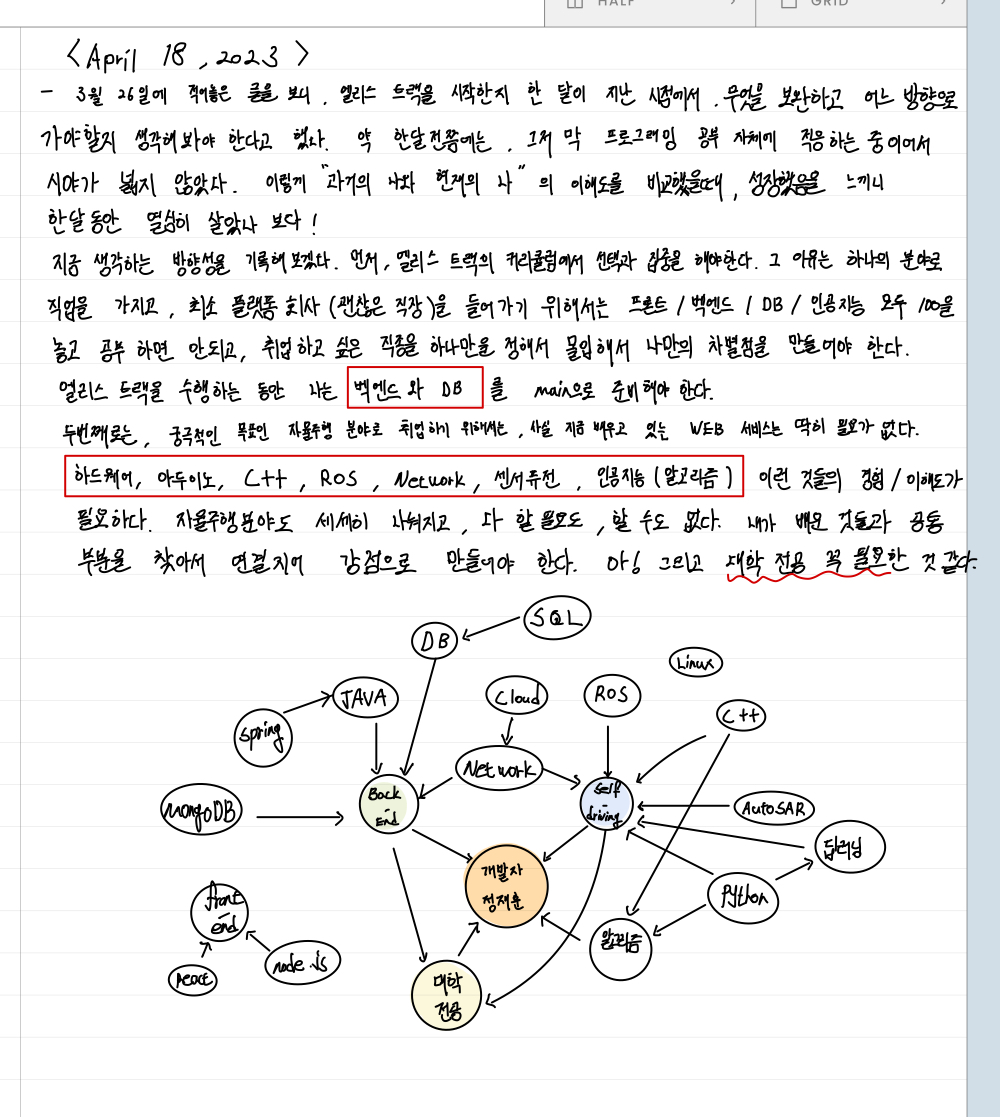 HALF
GRID
<April 18, 2023>
- 3월 26일에 적어놓은 글을 보니, 엘리스 트랙을 시작한지 한 달이 지난 시점에서, 무엇을 보완하고 어느 방향으로
가야할지 생각해봐야 한다고 했다. 약 한달전쯤에는, 그저 막 프로그래밍 공부 자체에 적응하는 중이어서
시야가 넓지 않았다. 이렇게 "과거의 나와 현재의 나"의 이해도를 비교했을때, 성장했음을 느끼니
한달동안 열심히 살았나 보다!
지금 생각하는 방향성을 기록해보겠다. 먼저, 엘리스 트랙의 커리큘럼에서 선택과 집중을 해야한다. 그 이유는 하나의 분야로
직업을 가지고, 최소 플랫폼 회사(괜찮은 직장)을 들어가기 위해서는 프론트/백엔드/DB/인공지능 모두 100을
놓고 공부 하면 안되고, 취업하고 싶은 직종을 하나만을 정해서 몰입해서 나만의 차별점을 만들어야 한다.
엘리스 트랙을 수행하는 동안 나는 백엔드와 DB 를 main으로 준비해야 한다.
두번째로는, 궁극적인 목표인 자율주행 분야로 취업하기 위해서는, 사실 지금 배우고 있는 WEB 서비스는 딱히 필요가 없다.
하드웨어, 아두이노, C++, ROS, Network, 센서퓨전, 인공지능(알고리즘) 이런 것들의 경험/이해도가
필요하다. 자율주행분야도 세세히 나눠지고, 다 할 필요도, 할 수도 없다. 내가 배운 것들과 공통
부분을 찾아서 연결지어 강점으로 만들어야 한다. 아! 그리고 대학 전공 꼭 필요한 것 같다.
SQL
DB
Linux
JAVA
Cloud
ROS
C++
Spring
Network
Back-End
Self-driving
MongoDB
AutoSAR
딥러닝
개발자
정재훈
Python
front-end
알고리즘
node.js
React
대학
전공